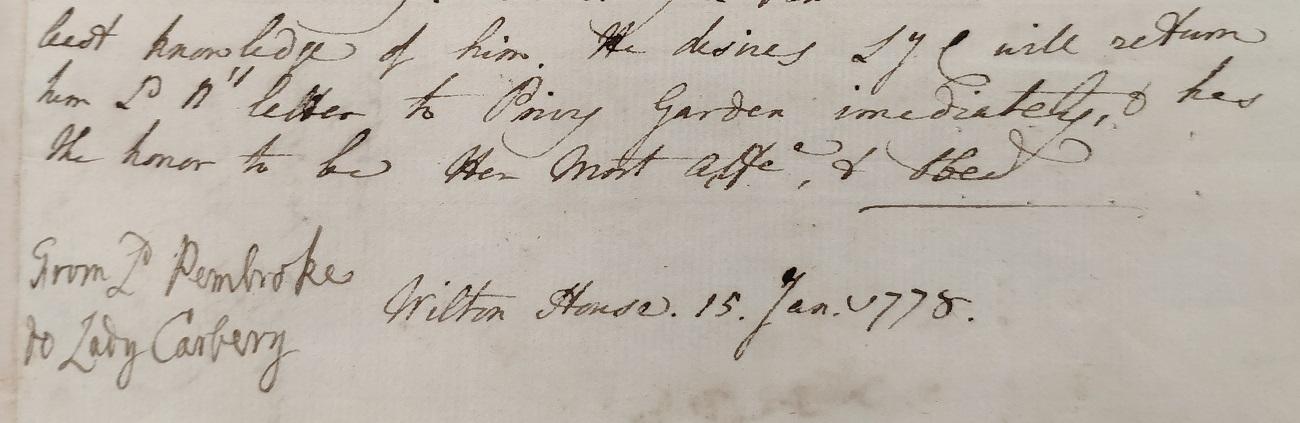 best knowledge of him. He desires Ly C will return
him Ld N's letter to Privy Garden imediately, & has
the honor to be Her Most Affte, & Obedt
From Ld Pembroke
to Lady Carbery
Wilton House. 15. Jan. 1778.